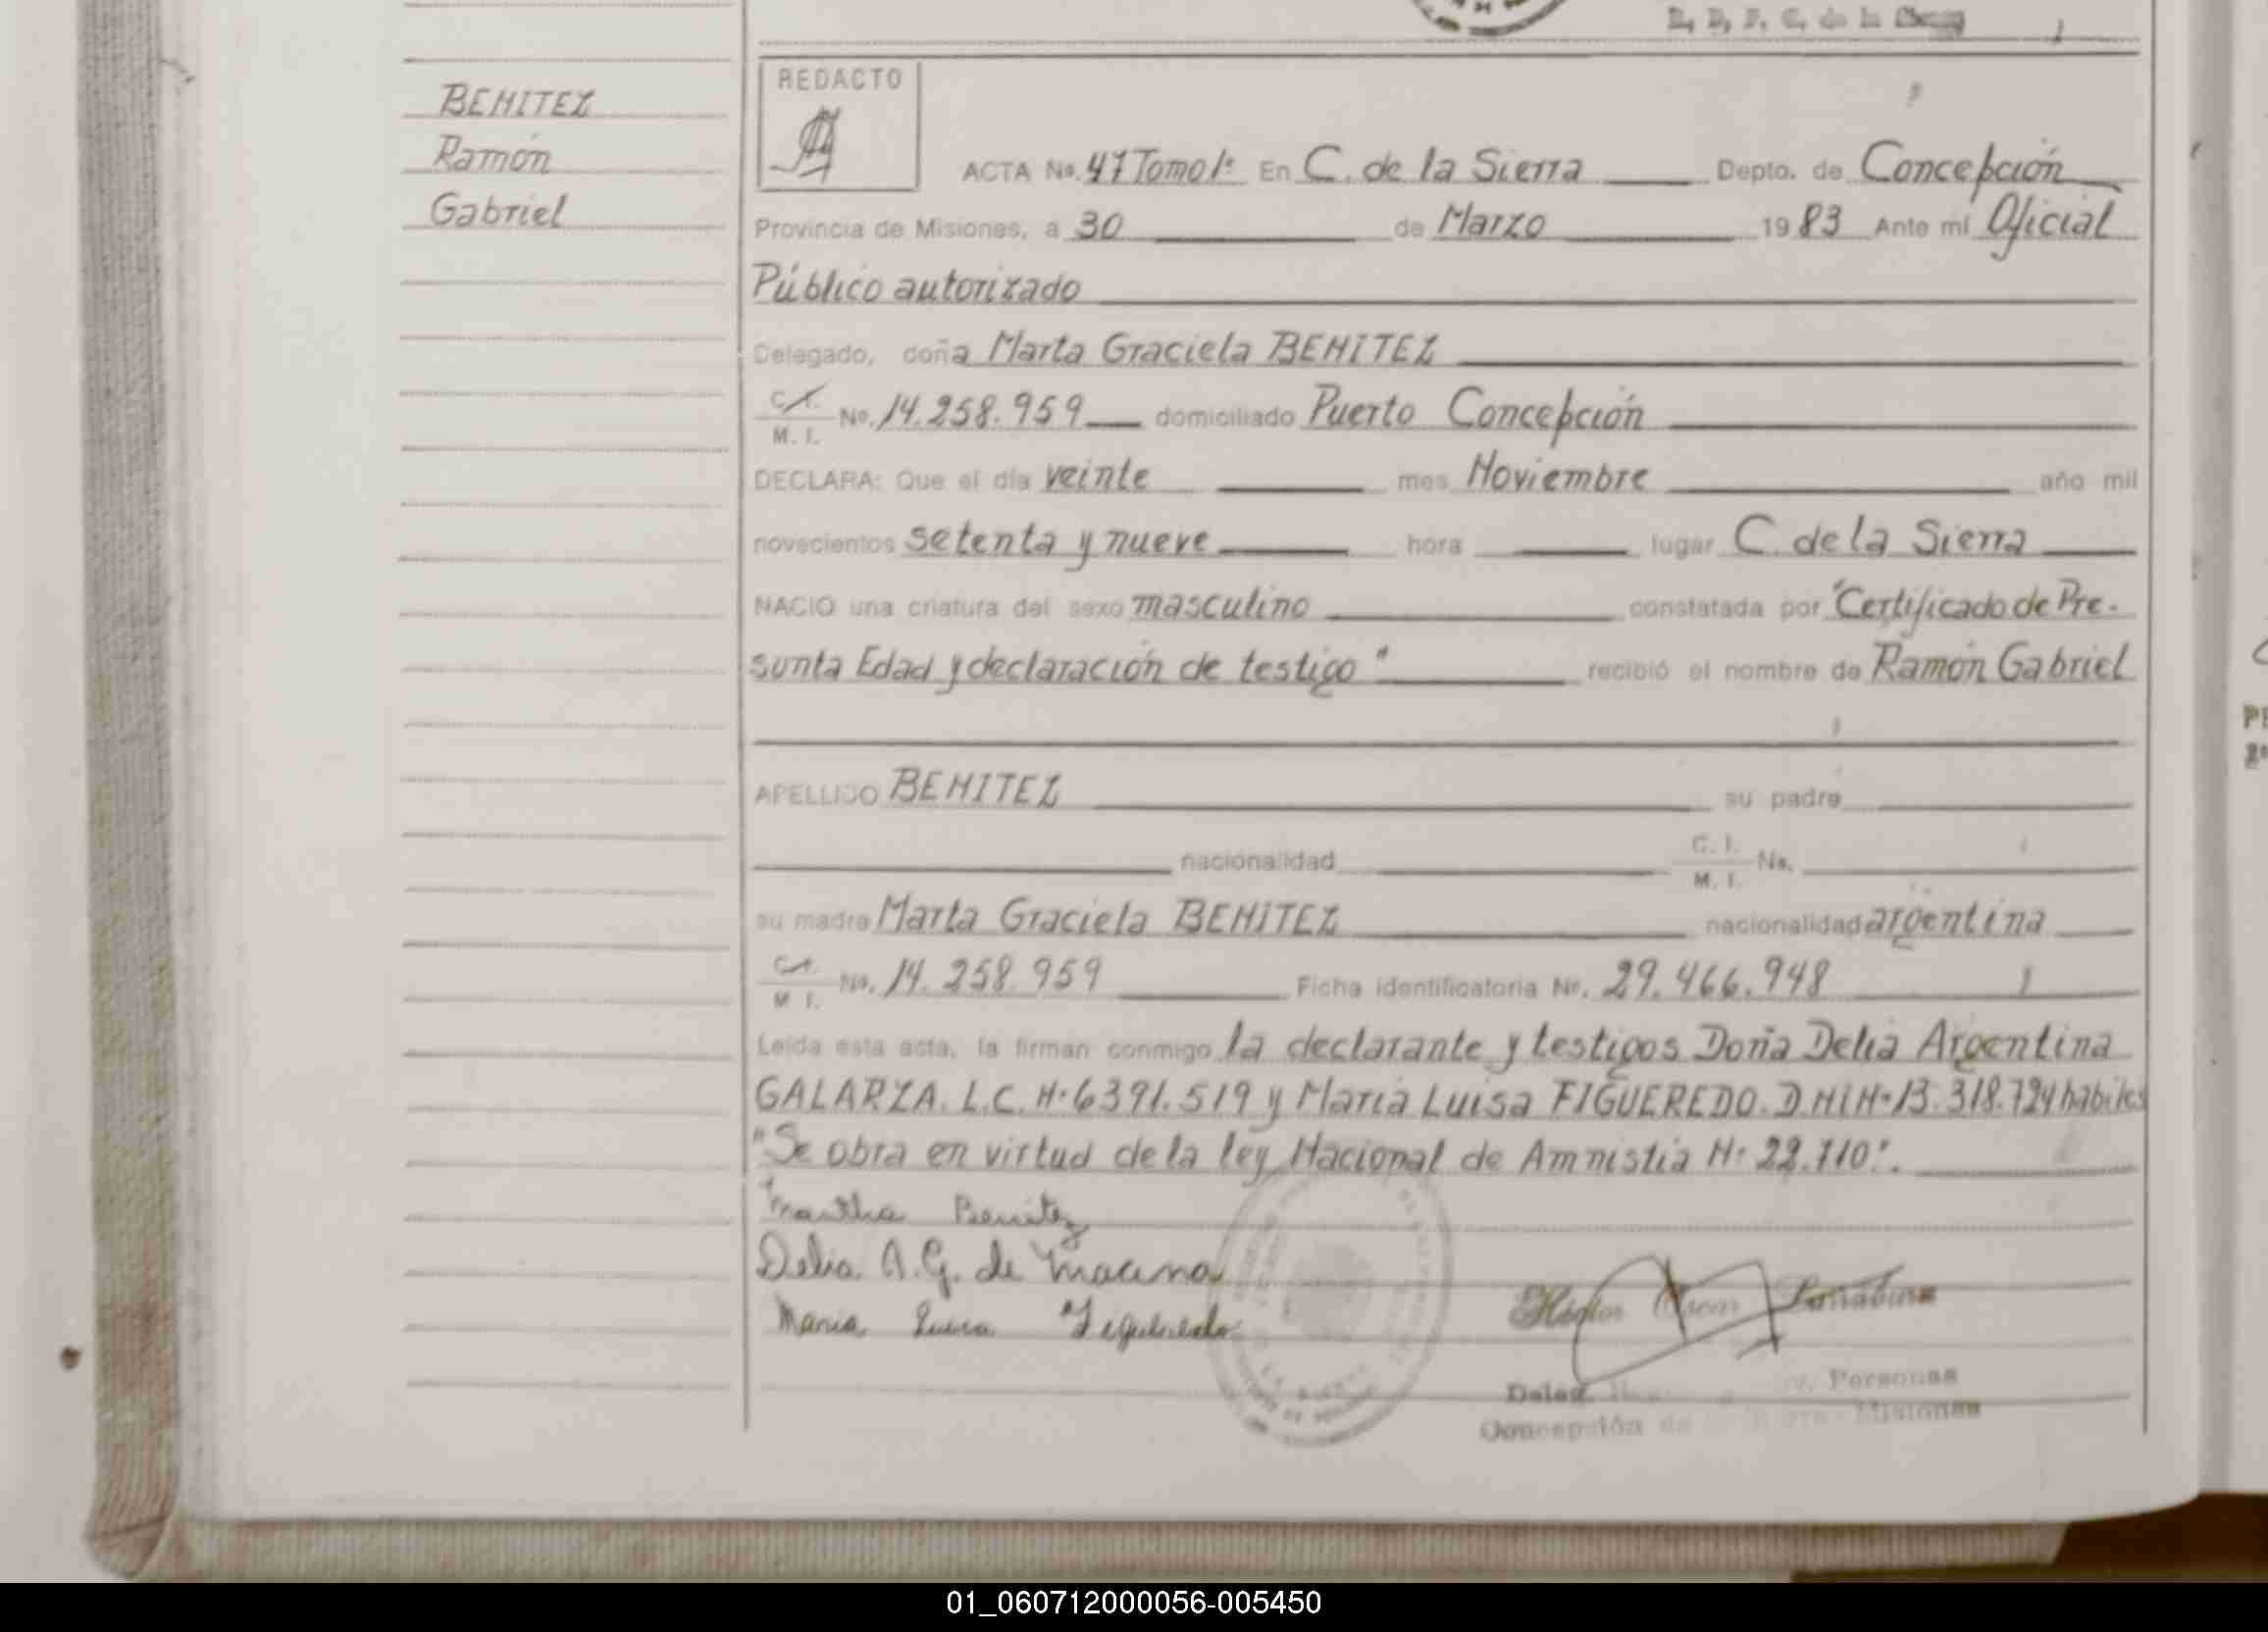 BENITEZ
Ramón
Gabriel
REDACTO
ACTA No. 47 Tomo 1º En C. de la Sierra Depto. de Concepción
Provincia de Misiones, a 30 de Marzo 1983 Ante mí Oficial
Público autorizado
Delegado, doña Marta Graciela BENITEZ
C.I.
M. I. No. 14.258.959 domiciliado Puerto Concepción
DECLARA: Que el día veinte mes Noviembre año mil
novecientos setenta y nueve hora lugar C. de la Sierra
NACIO una criatura del sexo masculino constatada por "Certificado de Pre-
sunta Edad y declaración de testigo" recibió el nombre de Ramón Gabriel
APELLIDO BENITEZ su padre
nacionalidad C. I.
M. I. No.
su madre Marta Graciela BENITEZ nacionalidad argentina
C.I.
M I. No. 14.258.959 Ficha identificatoria Nº. 29.466.948
Leída esta acta, la firman conmigo la declarante y testigos Doña Delia Argentina
GALARZA. L.C. Nº 6391.519 y María Luisa FIGUEREDO. D.N.I Nº 13.318.724 habiles
"Se obra en virtud de la ley Nacional de Amnistía Nº 22.710".
Martha Benitez
Delia A. G. de
Maria Luisa Figueredo
Héctor Oscar
Deleg. Personas
Concepción de Misiones
01_060712000056-005450